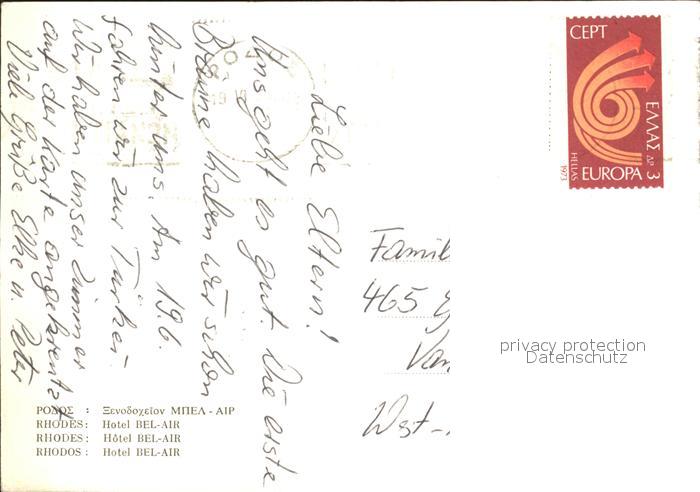 Liebe Eltern!
Uns geht es gut. Die erste
Bräune haben wir schon
hinter uns. Am 19.6.
fahren wir zur Türkei.
Wir haben unser Zimmer
auf der Karte angekreuzt
Viele Grüße Elke u. Peter
CEPT
ΕΛΛΑΣ ΔΡ 3
HELLAS
EUROPA
1973
Famil
465
Van
West-
privacy protection
Datenschutz
ΡΟΔΟΣ : Ξενοδοχεῖον ΜΠΕΛ - ΑΙΡ
RHODES: Hotel BEL-AIR
RHODES: Hôtel BEL-AIR
RHODOS: Hotel BEL-AIR